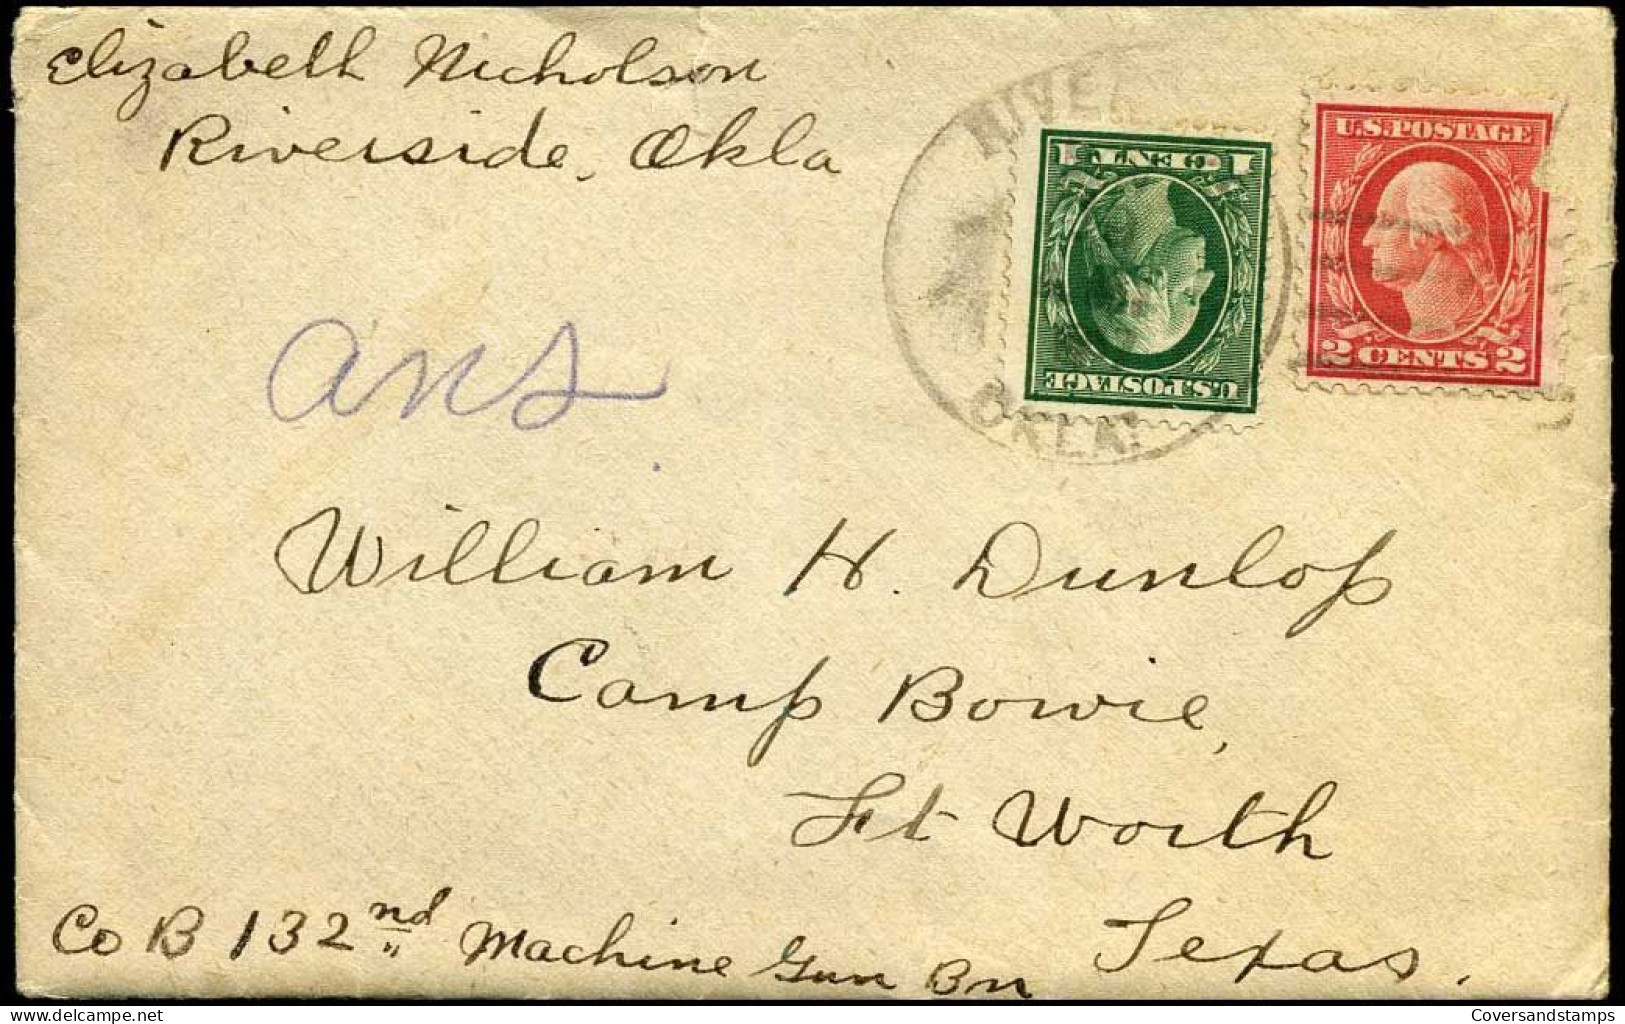 Elizabeth Nicholson
Riverside, Okla
RIVER
OKLA.
1 CENT 1
U.S.POSTAGE
U.S.POSTAGE
2 CENTS 2
ans.
William H. Dunlop
Camp Bowie,
Ft Worth
Texas.
Co B 132nd Machine Gun Bn
delcampe.net
Coversandstamps